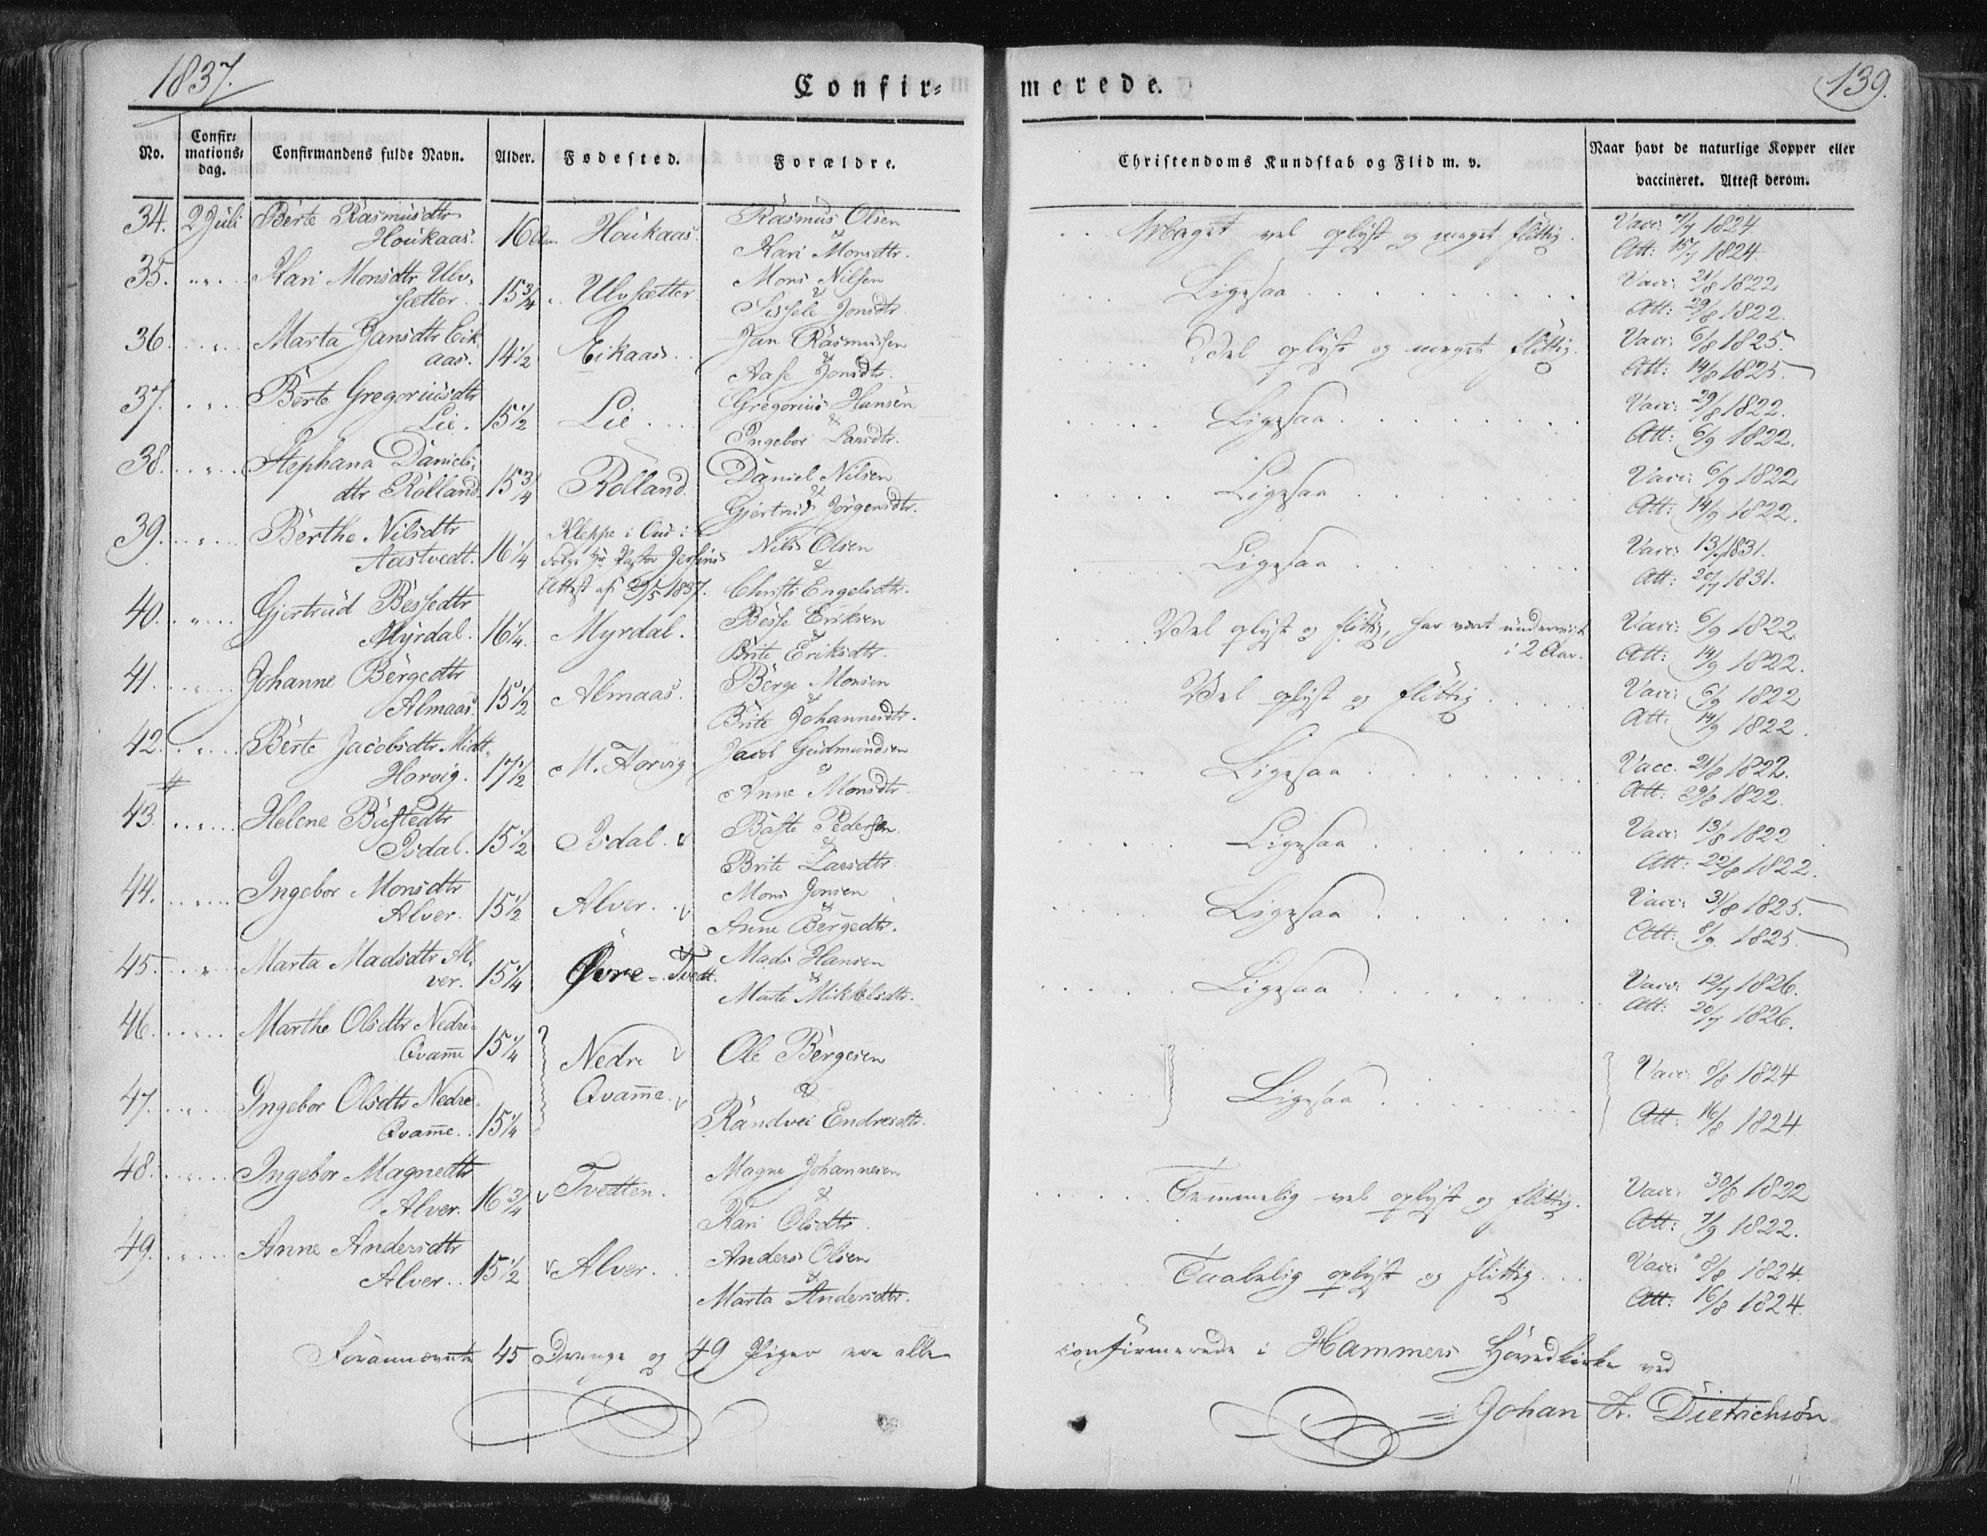 1837.
Confir=
merede.
139.
No.
Confir=
mations=
dag.
Confirmandens fulde Navn.
Alder.
Fødested.
Forældre.
Christendoms Kundskab og Flid m. v.
Naar havt de naturlige Kopper eller
vaccineret. Attest derom.
34. 2 Juli Berte Rasmusdtr
Houkaas. 16 Aar. Houkaas. Rasmus Olsen
&
Kari Monsdtr.
Meget vel oplyst og meget flittig.
Vacc: 7/7 1824
Att: 15/7 1824.
35. „ Kari Monsdtr Ulv-
sætter. 15 3/4 Ulvsætter Mons Nilsen
&
Sissele Jonsdtr.
Ligesaa
Vacc: 21/8 1822
Att: 29/8 1822.
36. „ Marta Jansdtr Eik
aas. 14 1/2 Eikaas. Jan Rasmussen
&
Aase Jonsdtr.
Vel oplyst og meget flittig.
Vacc: 6/8 1825.
Att: 14/8 1825.
37. „ Berte Gregoriusdtr
Lie. 15 1/2 Lie. Gregorius Hansen
&
Ingebor Larsdtr.
Ligesaa
Vacc: 29/8 1822.
Att: 6/9 1822.
38. „ Stephana Daniels-
dtr Rolland. 15 3/4 Rolland. Daniel Nilsen
&
Gjertrud Jørgensdtr.
Ligesaa
Vacc: 6/9 1822
Att: 14/9 1822.
39. „ Berthe Nilsdtr
Aastvedt. 16 1/4 Kleppe i Ous i
Følge Hr Pastor Jersins
Attest af 29/5 1837. Nils Olsen
&
Christi Engelsdtr.
Ligesaa
Vacc: 13/7 1831.
Att: 20/7 1831.
40. „ Gjertrud Bessedtr
Myrdal. 16 1/4. Myrdal. Besse Eriksen
&
Brite Eriksdtr.
Vel oplyst og flittig, har været underviist
i 2 Aar.
Vacc: 6/9 1822
Att: 14/9 1822.
41. „ Johanne Bergedtr
Almaas. 15 1/2 Almaas. Berge Monsen
&
Brite Johannesdtr.
Vel oplyst og flittig.
Vacc: 6/9 1822
Att: 14/9 1822.
42. „ Berte Jacobsdtr Midt-
Horvig. 17 1/2 M. Horvig Jacob Gudmundsen
&
Anne Monsdtr.
Ligesaa
Vacc. 21/8 1822.
Att: 29/8 1822.
43. „ Helene Bustedtr
Isdal. 15 1/2 Isdal. Baste Pedersen
&
Brite Larsdtr.
Ligesaa
Vacc: 13/8 1822
Att: 22/8 1822.
44. „ Ingebor Monsdtr
Alver. 15 1/2 Alver. Mons Jonsen
&
Anne Bergedtr.
Ligesaa
Vacc: 31/8 1825.
Att: 8/9 1825.
45. „ Marta Madsdtr Al-
ver. 15 1/4 Øvre-Tvedt. Mads Hansen
&
Marte Mikkelsdtr.
Ligesaa
Vacc: 12/7 1826.
Att: 20/7 1826.
46. „ Marthe Olsdtr Nedre-
Qvam̄e 15 1/4
Nedre
Qvam̄e.
Ole Bergesen
&
Randvei Endresdtr.
Ligesaa
Vacc: 8/8 1824
Att: 16/8 1824
47. „ Ingebor Olsdtr Nedre-
Qvam̄e. 15 1/4
48. „ Ingebor Magnedtr
Alver. 16 3/4 Tvedten. Magne Johannesen
&
Kari Olsdtr.
Temmelig vel oplyst og flittig.
Vacc: 30/8 1822
Att: 7/9 1822.
49. „ Anne Andersdtr
Alver. 15 1/2 Alver. Anders Olsen
&
Marta Andersdtr.
Taalelig oplyst og flittig.
Vacc: 8/8 1824.
Att: 16/8 1824.
Forannævnte 45 Drenge og 49 Piger ere alle confirmerede i Hammers Hovedkirke ved
Johan Fr. Dietrichson